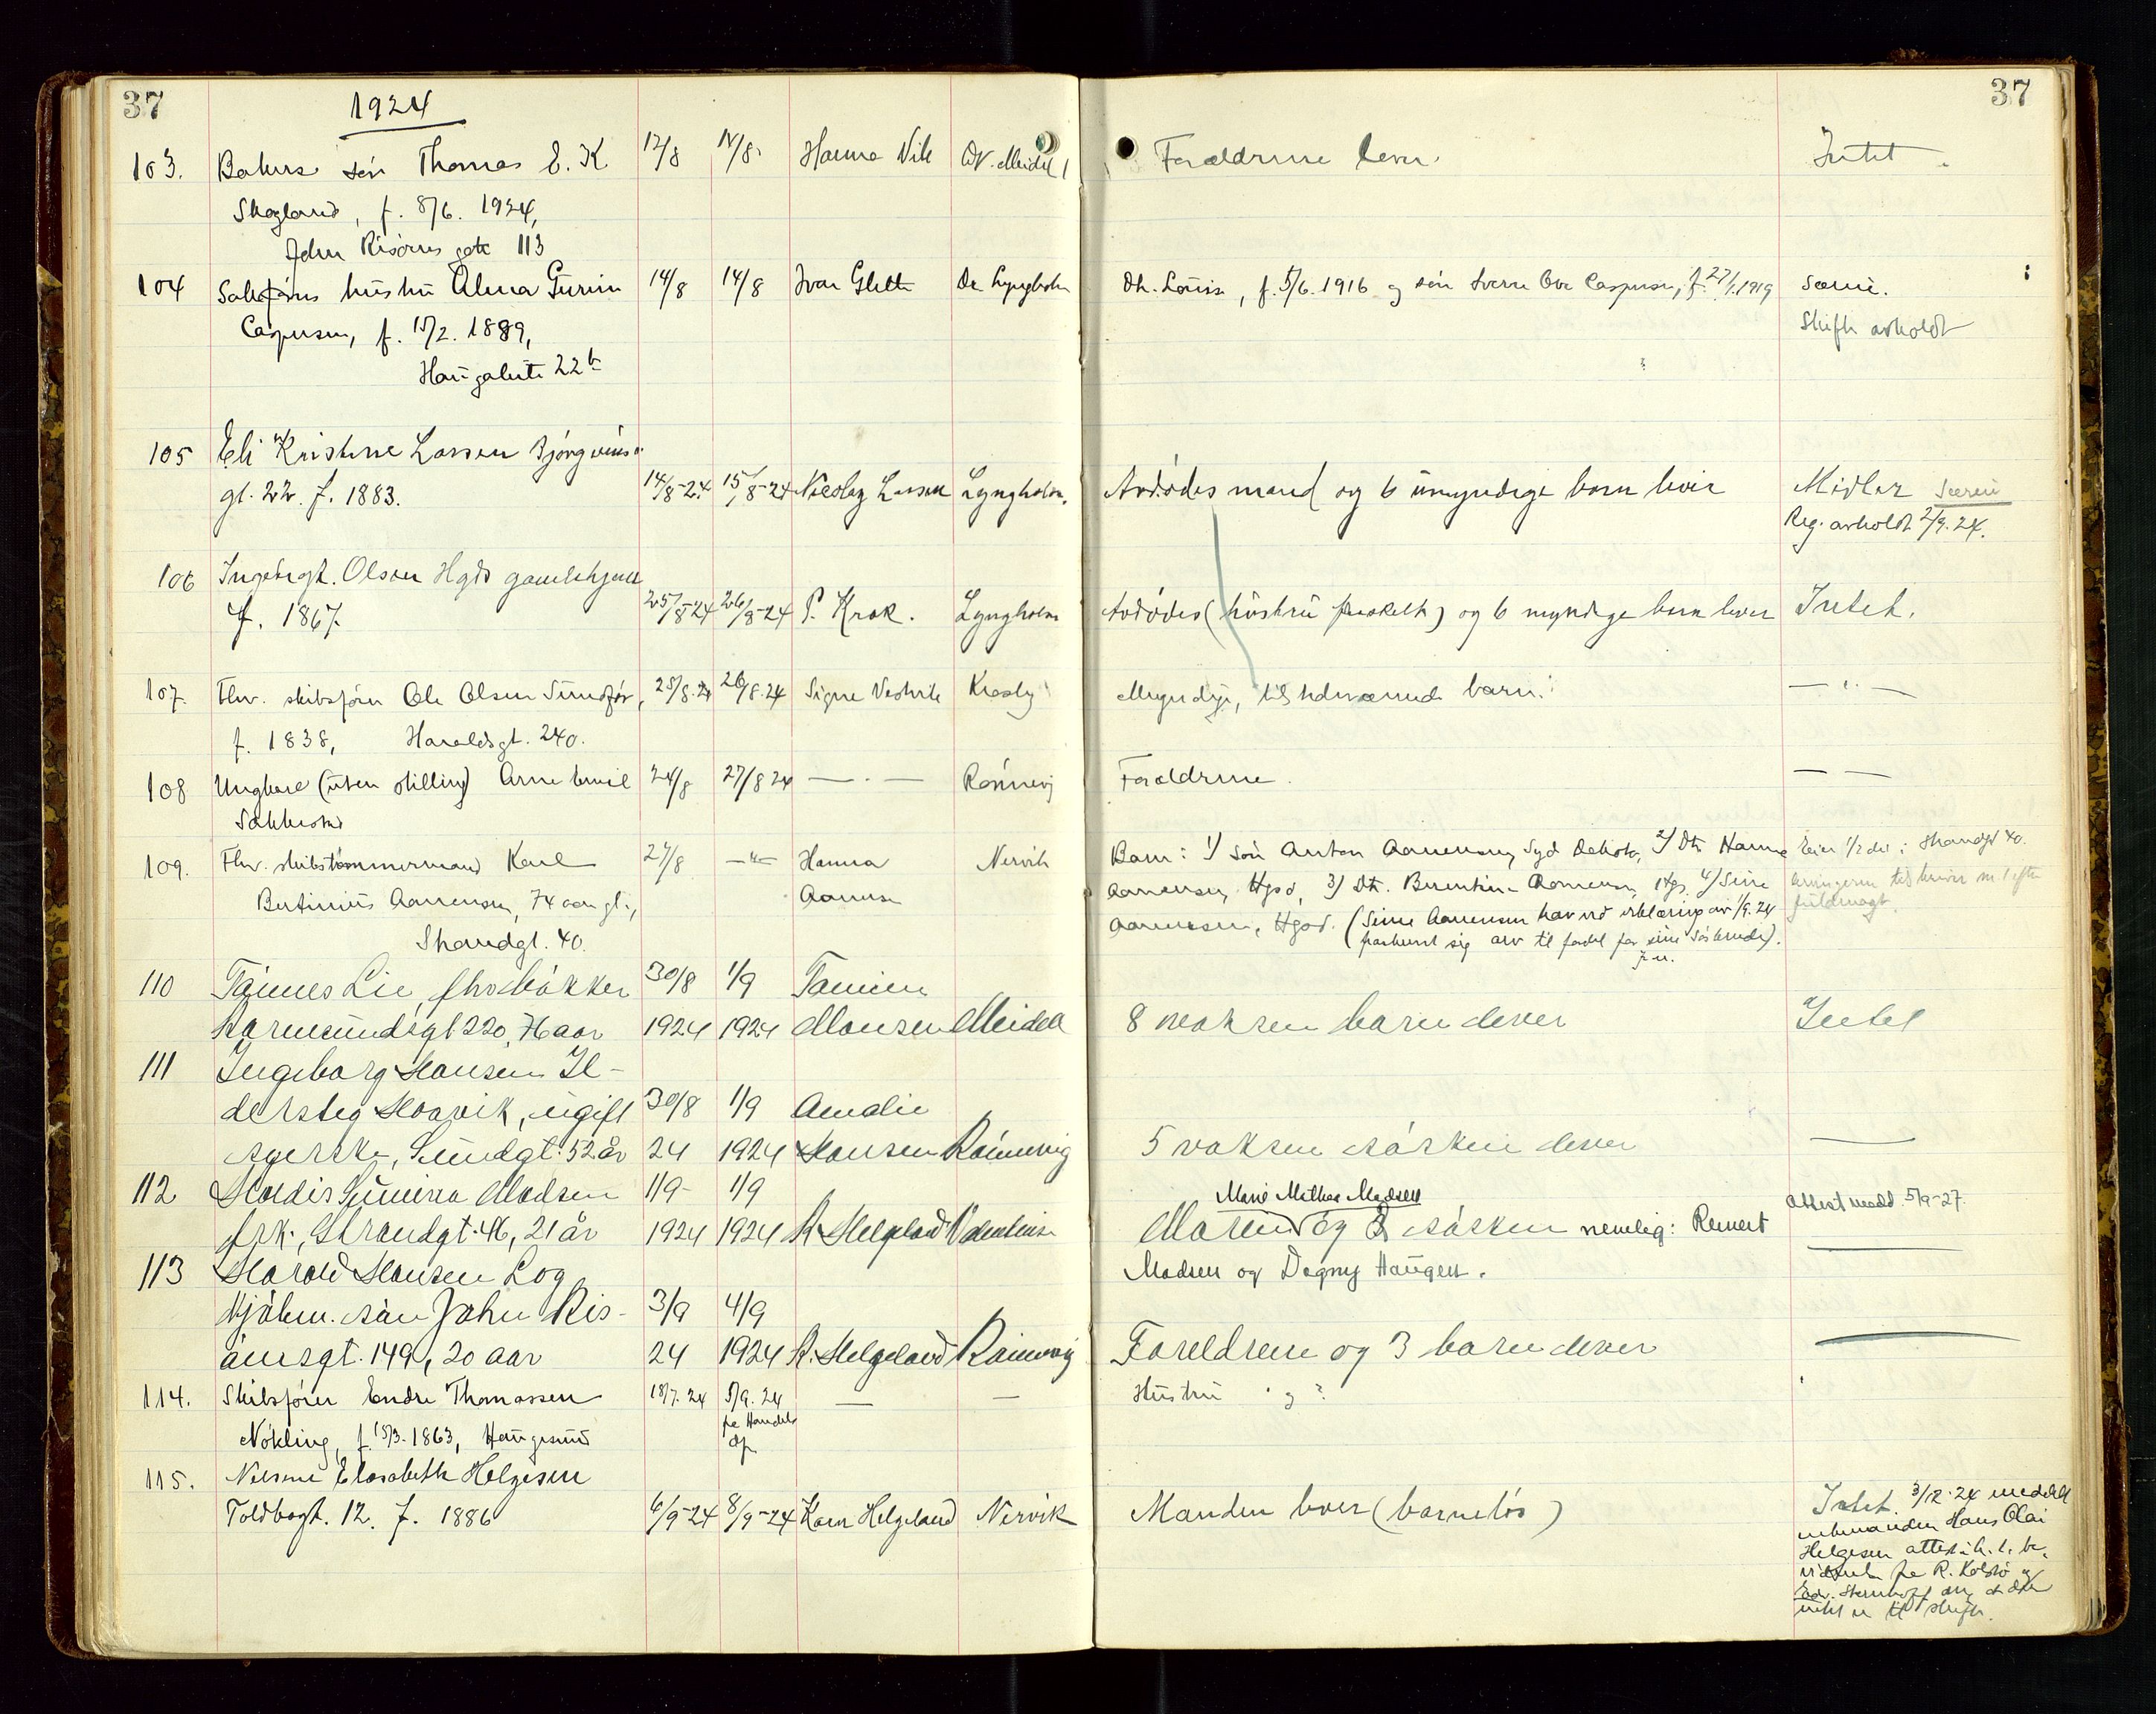 37
1924
37
103. Bakers søn Thomas E. K 12/8 14/8. Hanna Vik Dr. Meidel Forældrene lever. Intet
Skogland, f. 8/6. 1924,
John Risøens gate 113
104 Skibsførers hustru Alma Gurine 14/8 14/8 Ivar Glette Dr Lyngholm Dtr. Louise, f. 5/6. 1916 og søn Sverre Ove Caspersen, f. 27/1.1919 Særeie.
Caspersen, f. 15/2. 1889, Skifte avholdt
Haugalüte 22b
105 Eli Kristine Larsen Bjørgvins
gt. 22. f. 1883. 14/8-24 15/8-24 Nicolay Larsen Lyngholm. Avdødes mand og 6 umyndige barn lever Midler Særeie
Reg. avholdt 2/9. 24.
106 Ingebrgt. Olsen Hgds gamlehjem
f. 1867. 25/8-24 26/8-24 P. Krak. Lyngholm Avdødes (hustru fraskelt) og 6 myndige barn lever Intet.
107. Fhv. skibsfører Ole Olsen Sundfør, 25/8.24 26/8.24 Signe Vestvik Krosby Myndige, tilstedeværende barn. — " —
f. 1838, Haraldsgt. 240.
108 Ungkarl (uten stilling) Arne Emil 24/8 27/8 24 — . — Rønnevig Forældrene. — —
Sakkestad
109. Fhv. skibstømmermand Karl 27/8 — " — Hanna Nervik Barn: 1) søn Anton Aanensen, Syd Dakota, 2) Dtr Hanna Eier 1/2 del i Strandgt 40.
Bertinius Aanensen, 74 aar gl., Aanensen Aanensen, Hgsd, 3) Dtr. Berentine Aanensen, Hgs. 4) Sine
Strandgt. 40. Aanensen, Hgsd. (Sine Aanensen har ved erklæring av 1/9. 24 fuldmagt.
frasagt sig arv til fordel for sine søskende).
110 Tønnes Lie, fhv bøkker 30/8 1/9 Tomine
Karmsundsgt 220, 76 aar 1924 1924 Monsen Meidell 8 voksen barn lever Intet
111 Ingeborg Hansen Il-
dersteg Haavik, ugift 30/8 1/9 Amalie
syerske, Sundgt. 52 år 24 1924 Hansen Rønnevig 5 voksen søsken lever —
112 Hældis Gunina Madsen 1/9- 1/9 Marie Mathea Madsen Attest medd. 5/9-27.
frk., Strandgt. 46, 21 år 1924 1924 K Helgeland Valentinsen Moren og 2 søsken nemlig: Remert
113 Harald Hansen Log Madsen og Dagny Haugen.
Mjølen. søn John Ris- 3/9 4/9
øensgt. 149, 20 aar 24 1924 K. Helgeland Rønnevig Foreldrene og 3 barn lever —
114. Skibsfører Endre Thomassen 18/7. 24 5/9. 24 — — Hustru og ?
Nøkling, f. 15/3. 1863, Haugesund fra Handels dp.
115. Nilsine Elisabeth Helgesen
Toldbogt. 12. f. 1886 6/9-24 8/9-24 Karn Helgeland Nervik Manden lever (barnløs) Intet. 3/12. 24 meddelt
enkemanden Hans Olai
Helgesen attest
fra R. Kolstø og
intet er til skifte.